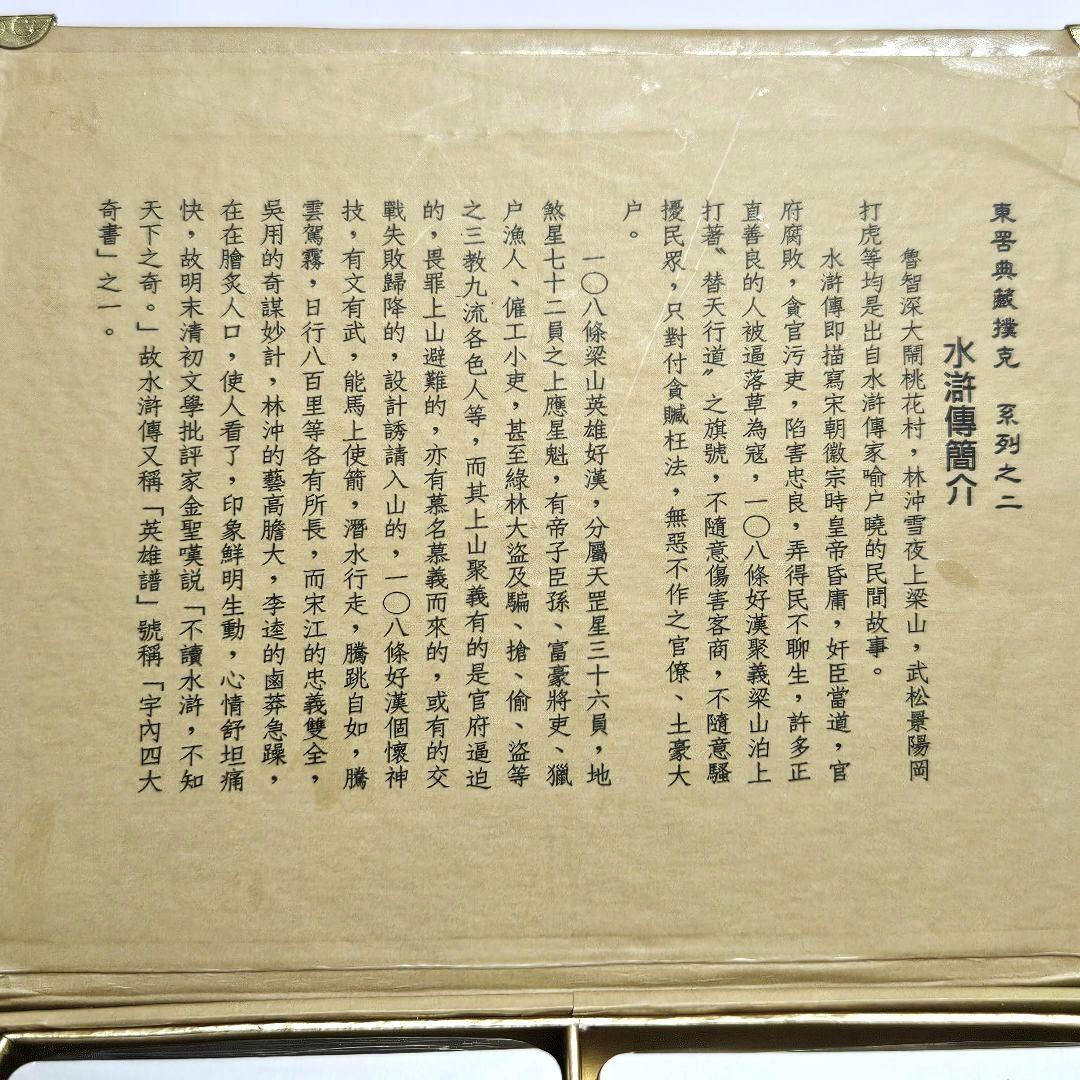 東罟典藏撲克　系列之二
水滸傳簡介
魯智深大鬧桃花村，林沖雪夜上梁山，武松景陽岡
打虎等均是出自水滸傳家喻户曉的民間故事。
水滸傳即描寫宋朝徽宗時皇帝昏庸，奸臣當道，官
府腐敗，貪官污吏，陷害忠良，弄得民不聊生，許多正
直善良的人被逼落草為寇，一〇八條好漢聚義梁山泊上
打著〝替天行道〞之旗號，不隨意傷害客商，不隨意騷
擾民眾，只對付貪贓枉法，無惡不作之官僚、土豪大
户。
一〇八條梁山英雄好漢，分屬天罡星三十六員，地
煞星七十二員之上應星魁，有帝子臣孫、富豪將吏、獵
户漁人、僱工小吏，甚至綠林大盜及騙、搶、偷、盜等
之三教九流各色人等，而其上山聚義有的是官府逼迫
的，畏罪上山避難的，亦有慕名慕義而來的，或有的交
戰失敗歸降的，設計誘請入山的，一〇八條好漢個懷神
技，有文有武，能馬上使箭，潛水行走，騰跳自如，騰
雲駕霧，日行八百里等各有所長，而宋江的忠義雙全，
吳用的奇謀妙計，林沖的藝高膽大，李逵的鹵莽急躁，
在在膾炙人口，使人看了，印象鮮明生動，心情舒坦痛
快，故明末清初文學批評家金聖嘆説「不讀水滸，不知
天下之奇。」故水滸傳又稱「英雄譜」號稱「宇內四大
奇書」之一。